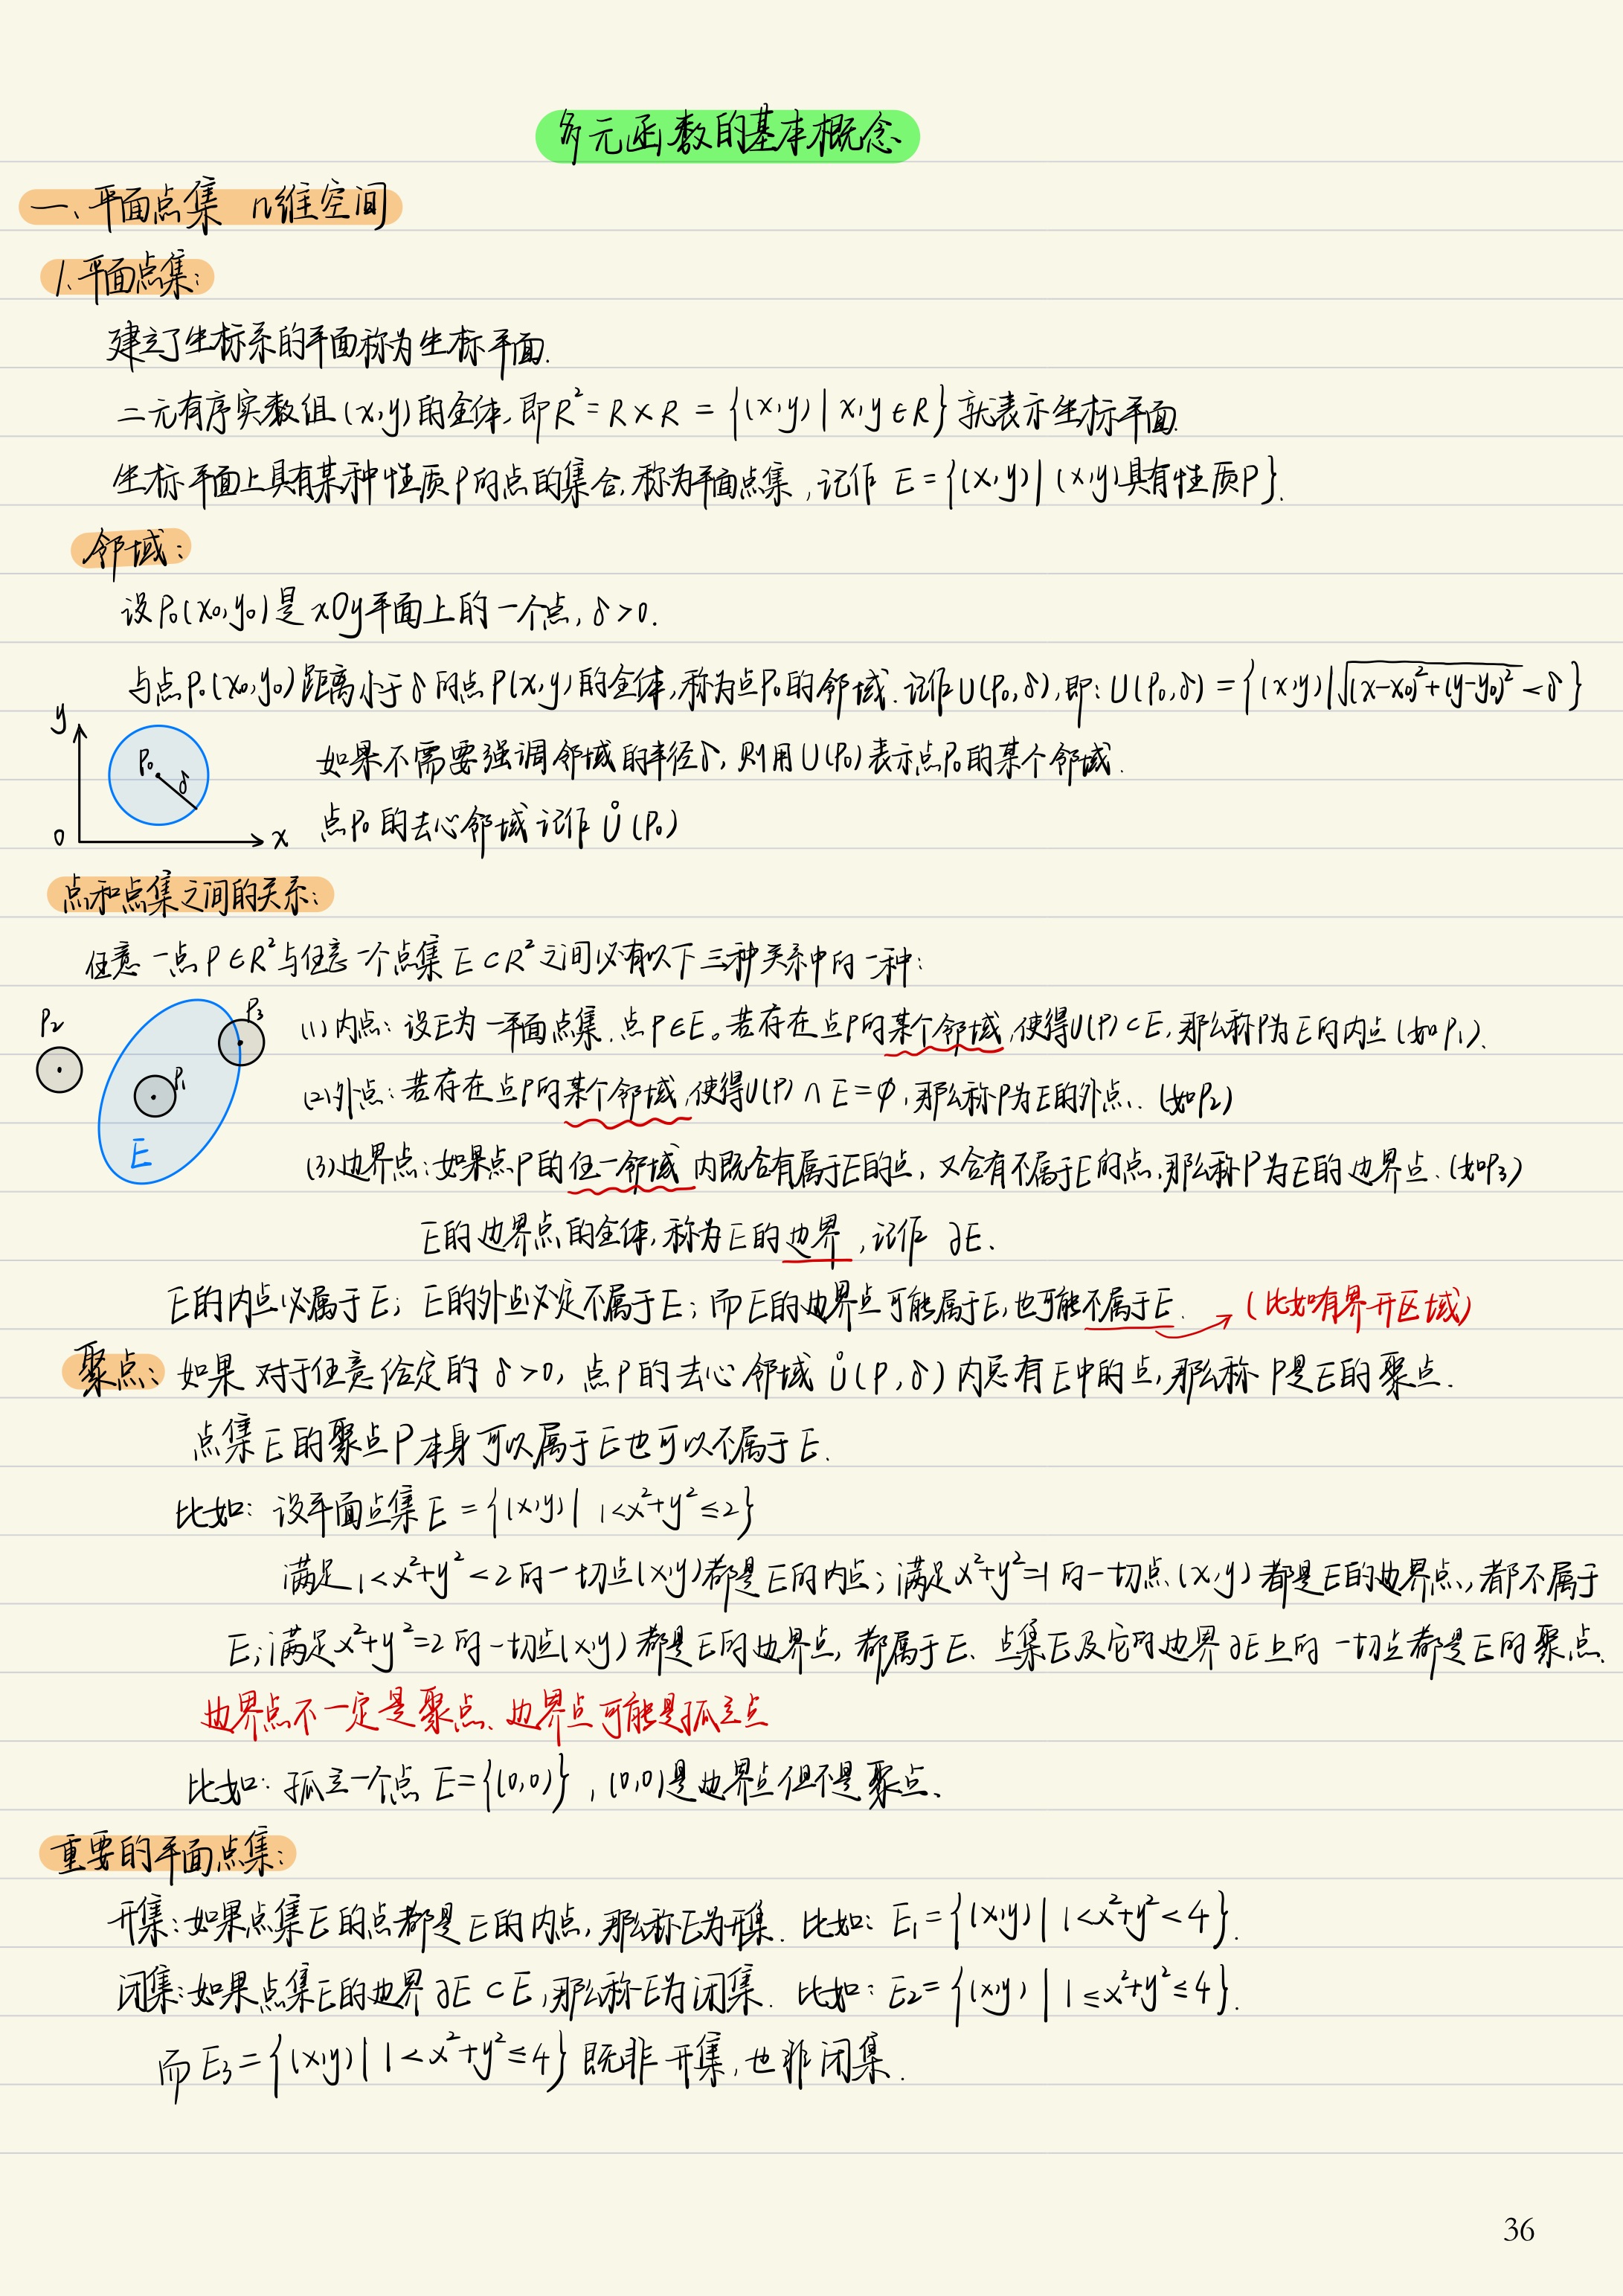 多元函数的基本概念
一、平面点集 n维空间
1.平面点集:
建立了坐标系的平面称为坐标平面.
二元有序实数组(x,y)的全体,即R²=R×R={(x,y)|x,y∈R}就表示坐标平面.
坐标平面上具有某种性质P的点的集合,称为平面点集,记作 E={(x,y)|(x,y)具有性质P}.
邻域:
设P₀(x₀,y₀)是xOy平面上的一个点,δ>0.
与点P₀(x₀,y₀)距离小于δ的点P(x,y)的全体,称为点P₀的邻域.记作U(P₀,δ),即:U(P₀,δ)={(x,y)|√(x-x₀)²+(y-y₀)²<δ}
y
P₀
δ
0
x
如果不需要强调邻域的半径δ,则用U(P₀)表示点P₀的某个邻域.
点P₀的去心邻域记作Ů(P₀)
点和点集之间的关系:
任意一点P∈R²与任意一个点集E⊂R²之间必有以下三种关系中的一种:
P₂
P₃
P₁
E
(1)内点:设E为一平面点集.点P∈E。若存在点P的某个邻域,使得U(P)⊂E,那么称P为E的内点(如P₁).
(2)外点:若存在点P的某个邻域,使得U(P)∩E=∅,那么称P为E的外点.(如P₂)
(3)边界点:如果点P的任一邻域内既含有属于E的点,又含有不属于E的点,那么称P为E的边界点.(如P₃)
E的边界点的全体,称为E的边界,记作 ∂E.
E的内点必属于E;E的外点必定不属于E;而E的边界点可能属于E,也可能不属于E.→(比如有界开区域)
聚点:如果对于任意给定的δ>0,点P的去心邻域Ů(P,δ)内总有E中的点,那么称P是E的聚点.
点集E的聚点P本身可以属于E也可以不属于E.
比如:设平面点集E={(x,y)|1<x²+y²≤2}
满足1<x²+y²<2的一切点(x,y)都是E的内点;满足x²+y²=1的一切点(x,y)都是E的边界点,都不属于
E;满足x²+y²=2的一切点(x,y)都是E的边界点,都属于E.点集E及它的边界∂E上的一切点都是E的聚点.
边界点不一定是聚点、边界点可能是孤立点
比如:孤立一个点 E={(0,0)},(0,0)是边界点但不是聚点、
重要的平面点集:
开集:如果点集E的点都是E的内点,那么称E为开集.比如:E₁={(x,y)|1<x²+y²<4}.
闭集:如果点集E的边界∂E⊂E,那么称E为闭集.比如:E₂={(x,y)|1≤x²+y²≤4}.
而E₃={(x,y)|1<x²+y²≤4}既非开集,也非闭集.
36